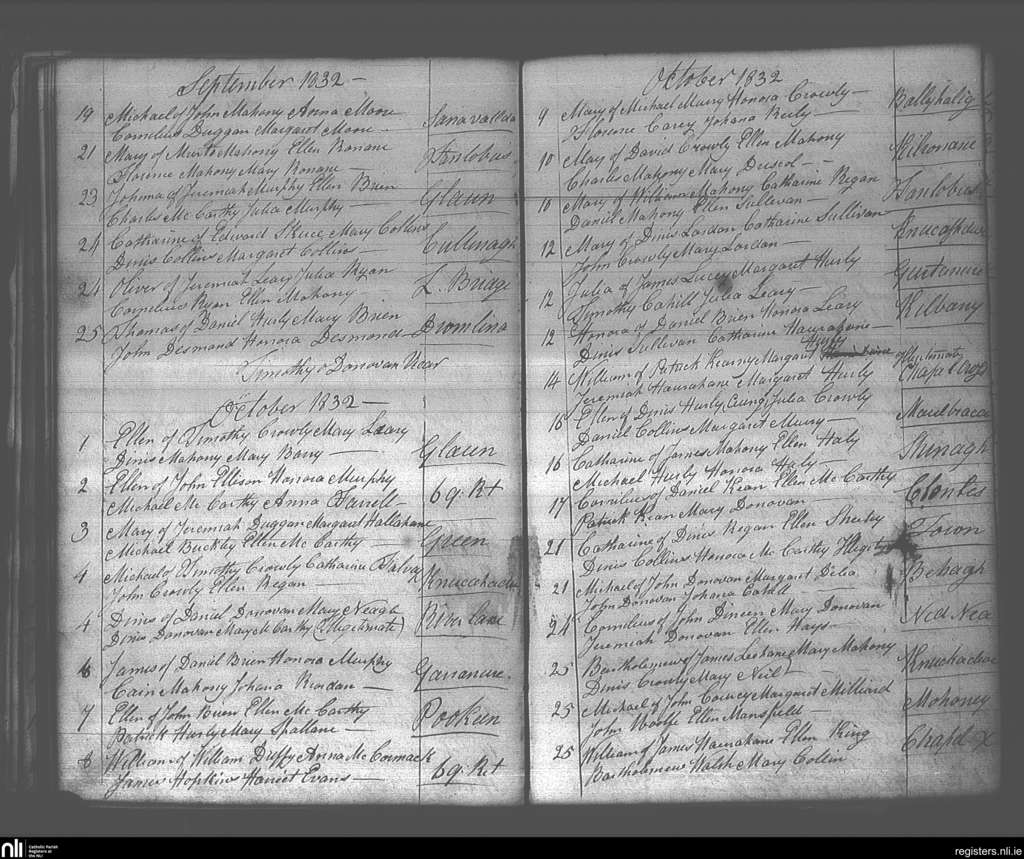 September 1832 —
19 Michael of John Mahony Anna Moore
Cornelius Duggan Margaret Moore -
21 Mary of Mahony Ellen Ronane Fanlobus
Florence Mahony Mary Ronane
23 Johana of Jeremiah Murphy Ellen Brien Glaun
Charles Mc Carthy Julia Murphy —
24 Catharine of Edward Mary Collins Cullenagh
Dinis Collins Margaret Collins —
24 Oliver of Jeremiah Leary Julia Ryan L. Bridge
Cornelius Ryan Ellen Mahony
25 Thomas of Daniel Hurly Mary Brien Dromlina
John Desmond Honora Desmond
Timothy o Donovan Vicar
October 1832 —
1 Ellen of Timothy Crowly Mary Leary Glaun
Dinis Mahony Mary Barry —
2 Ellen of John Ellison Honora Murphy 69. Rt
Michael Mc Carthy Anna Farrell
3 Mary of Jeremiah Duggan Margaret Hallahane Green
Michael Buckley Ellen Mc Carthy —
4 Michael of Timothy Crowly Catharine Knucahadue
John Crowly Ellen Regan —
4 Dinis of Daniel Donovan Mary Neagh River Lane
Dinis Donovan Mary Mc Carthy (Illegitimate)
6 James of Daniel Brien Honora Murphy
Cain Mahony Johana Riordan —
7 Ellen of John Brien Ellen Mc Carthy Pookeen
Patrick Hurly Mary Spallane —
8 William of William Duffy Anna Mc Cormack 69. Rt
James Hopkins Hariot Evans —
October 1832
9 Mary of Michael Murry Honora Crowly — Ballyhalig
Florence Carey Johana Reily —
10 Mary of David Crowly Ellen Mahony Kilronane
Charles Mahony Mary Driscol —
10 Mary of William Mahony Catharine Regan Fanlobus
Daniel Mahony Ellen Sullivan —
12 Mary of Dinis Lordan Catharine Sullivan
John Crowly Mary Lordan —
12 Julia of James Lucey Margaret Hurly
Timothy Cahill Julia Leary —
12 Honora of Daniel Brien Honora Leary Kilbany
Dinis Sullivan Catharine Haurahane —
Hurly
14 William of Patrick Kearny Margaret Illegitimate
Jeremiah Haurahane Margaret Hurly Chapel
16 Ellen of Dinis Hurly (Cung) Julia Crowly
Daniel Collins Margaret Murry —
16 Catharine of James Mahony Ellen Haly Shinagh
Michael Hurly Honora Haly —
17 Cornelius of Daniel Kean Ellen Mc Carthy Clontes
Patrick Kean Mary Donovan
21 Catharine of Dinis Regan Ellen Sheehy Town
Dinis Collins Honora Mc Carthy
21 Michael of John Donovan Margaret Delia Behagh
John Donovan Johana Cahill
24 Cornelius of John Dineen Mary Donovan Ned Nea
Jeremiah Donovan Ellen Hays —
25 Bartholomew of James Leehane Mary Mahony
Dinis Crowly Mary Neil
25 Michael of John Margaret Milliard Mahoney
John Woolfe Ellen Mansfield —
25 William of James Haurahane Ellen King Chapel X
Bartholomew Walsh Mary Collin
nli Catholic Parish
Registers at
the NLI
registers.nli.ie